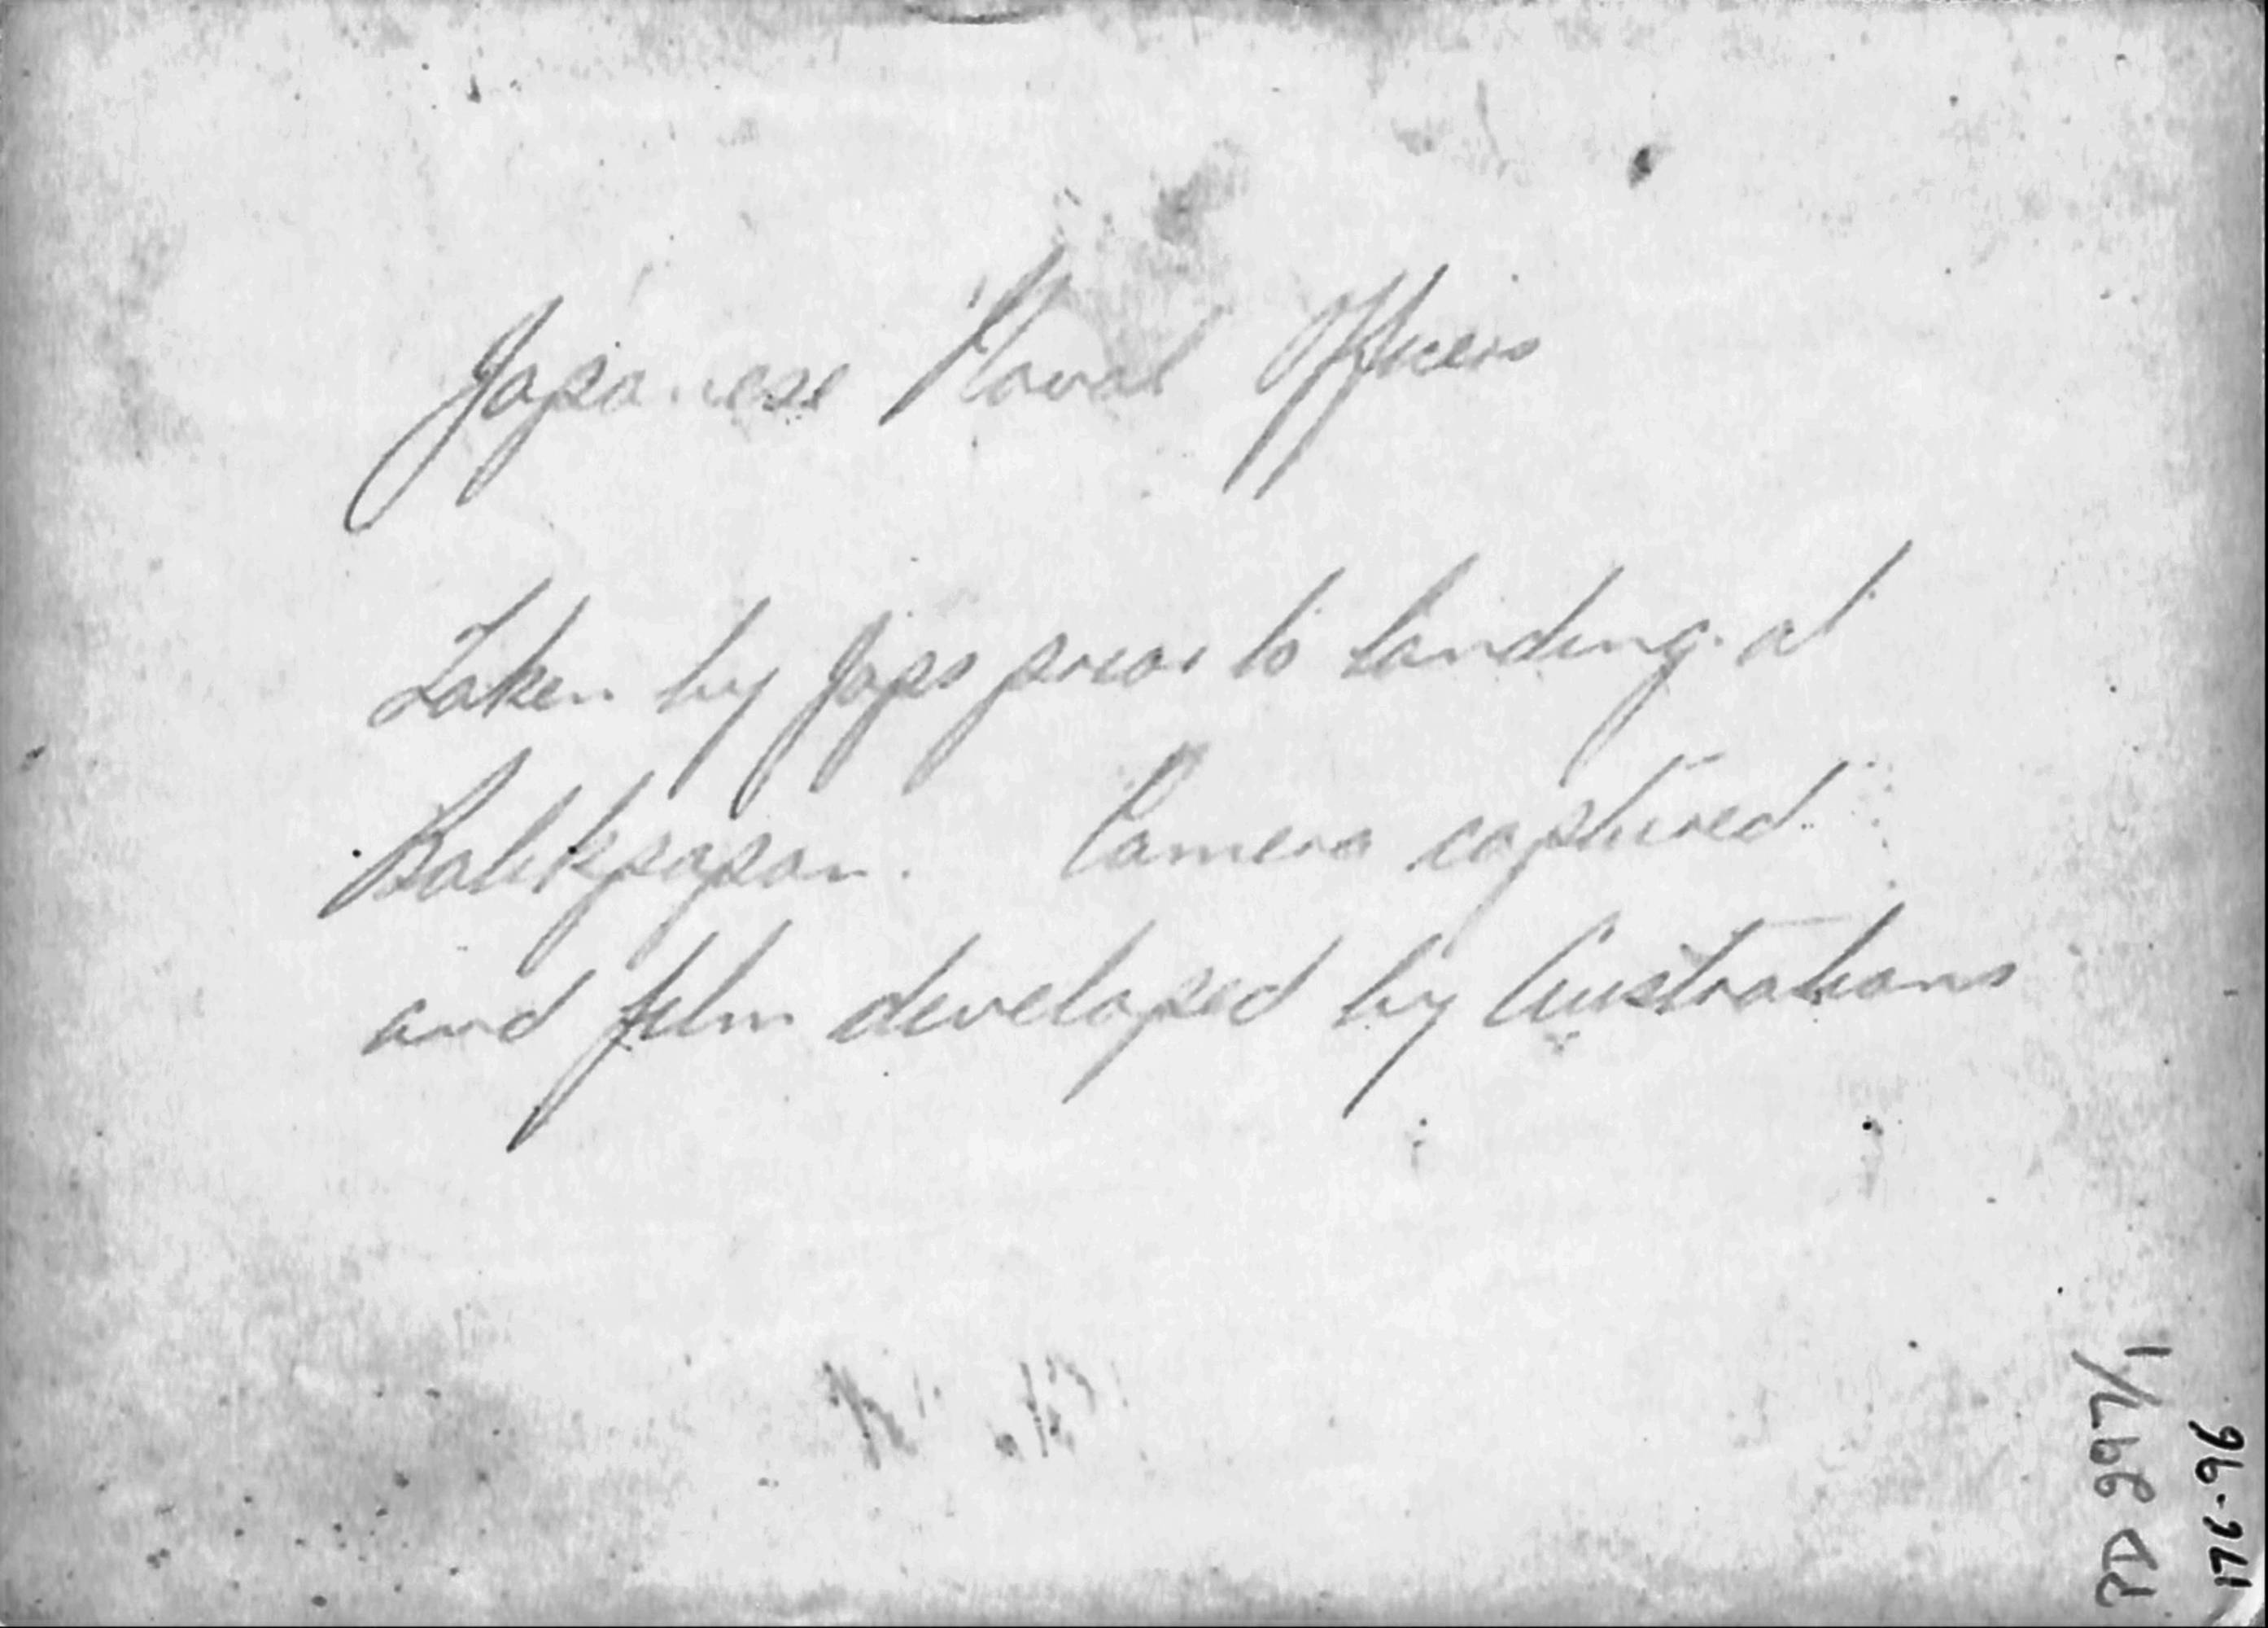 Japanese Naval Officers
Taken by Japs prior to landing at
Balikpapan. Camera captured
and film developed by Australians
PD 297/1